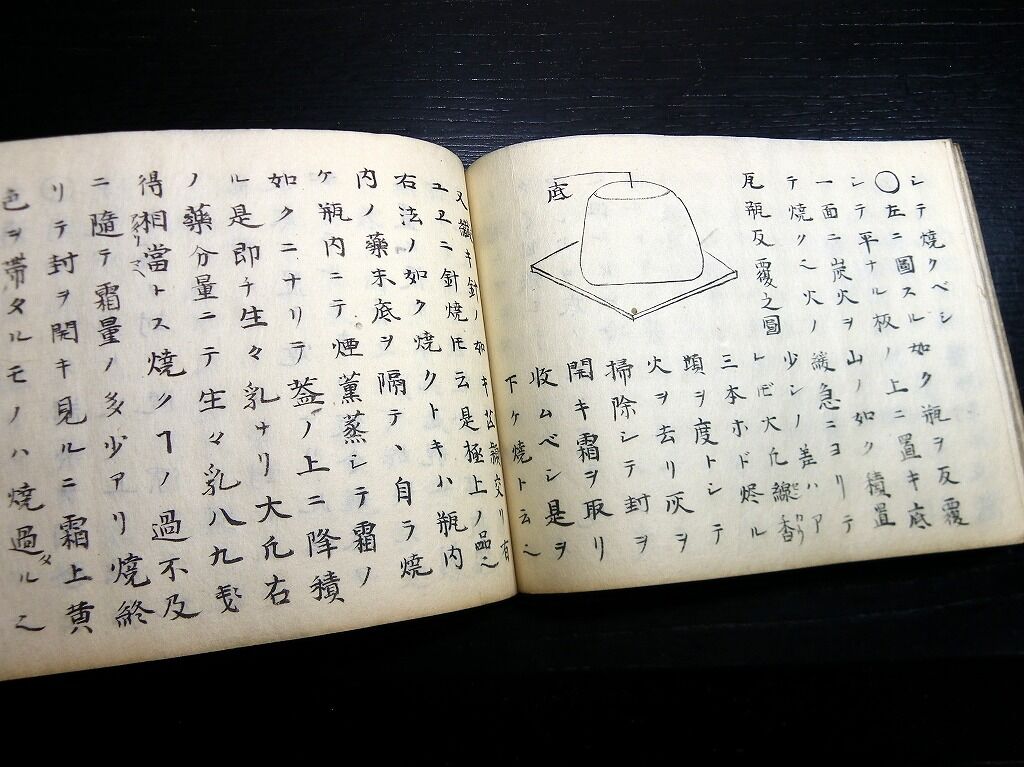 シテ燒クベシ
〇左ニ圖スル如ク瓶ヲ反覆
シテ平ナル板ノ上ニ置キ底
一面ニ炭火ヲ山ノ如ク積置
テ燒ク火ノ緩急ニヨリテ
瓦瓶反覆之圖
底
少シノ差ハア
レ𪜈大凢線香
三本ホド烬ル
頭ヲ度トシテ
火ヲ去リ灰ヲ
掃除シテ封ヲ
開キ霜ヲ取リ
收ムベシ是ヲ
下ケ燒ト云之
又纖キ針ノ如キ芒交リ有
ユヱニ針燒𪜈云是極上ノ品之
右法ノ如ク燒クトキハ瓶内
内ノ藥末底ヲ隔テ丶自ラ燒
ケ瓶内ニテ煙薫蒸シテ霜ノ
如クニナリテ蓋ノ上ニ降積
ル是即チ生々乳ナリ大凢右
ノ藥分量ニテ生々乳八九戔
得相當トス燒クヿノ過不及
ニ隨テ霜量ノ多少アリ燒終
リテ封ヲ開キ見ルニ霜上黄
色ヲ帶タルモノハ燒過タル之